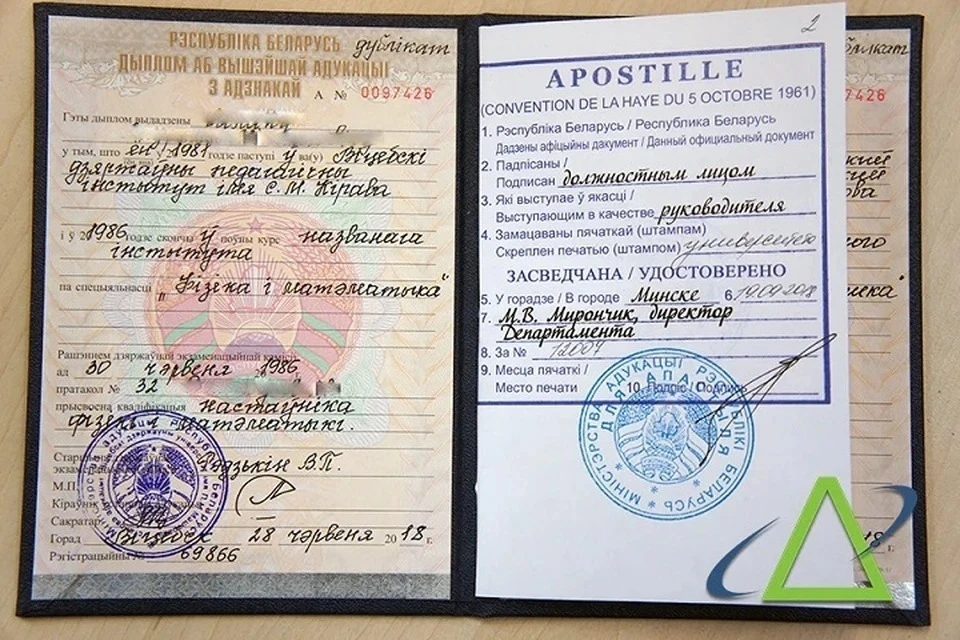 РЭСПУБЛІКА БЕЛАРУСЬ дублікат
ДЫПЛОМ АБ ВЫШЭЙШАЙ АДУКАЦЫІ
З АДЗНАКАЙ А № 0097426
Гэты дыплом выдадзены
у тым, што ён 1981 годзе паступі ў ва(у) Віцебскі
дзяржаўны педагагічны
інстытут імя С.М. Кірава
і ў 1986 годзе скончы ў поўны курс названага
інстытута
па спецыяльнасці "Фізіка і матэматыка"
Рашэннем дзяржаўнай экзаменацыйнай камісіі
ад 30 чэрвеня 1986
пратакол № 32
прысвоена кваліфікацыя настаўніка
фізікі і матэматыкі.
Старшыня дзяржаўнай
В.П.
М.П.
Кіраўнік
Сакратар
Горад Віцебск 28 чэрвеня 2018 г.
Рэгістрацыйны № 69866
2
APOSTILLE
(CONVENTION DE LA HAYE DU 5 OCTOBRE 1961)
1. Рэспубліка Беларусь / Республика Беларусь
Дадзены афіцыйны дакумент / Данный официальный документ
2. Падпісаны /
Подписан должностным лицом
3. Які выступае ў якасці /
Выступающим в качестве руководителя
4. Замацаваны пячаткай (штампам)
Скреплен печатью (штампом) университета
ЗАСВЕДЧАНА / УДОСТОВЕРЕНО
5. У горадзе / В городе Минске 6. 19.09.2018
7. М.В. Мирончик, директор
Департамента
8. За № 12007
9. Месца пячаткі /
Место печати 10. Подпіс / Подпись
МІНІСТЭРСТВА АДУКАЦЫІ РЭСПУБЛІКІ БЕЛАРУСЬ
ДЛЯ АПАСТЫЛЯ